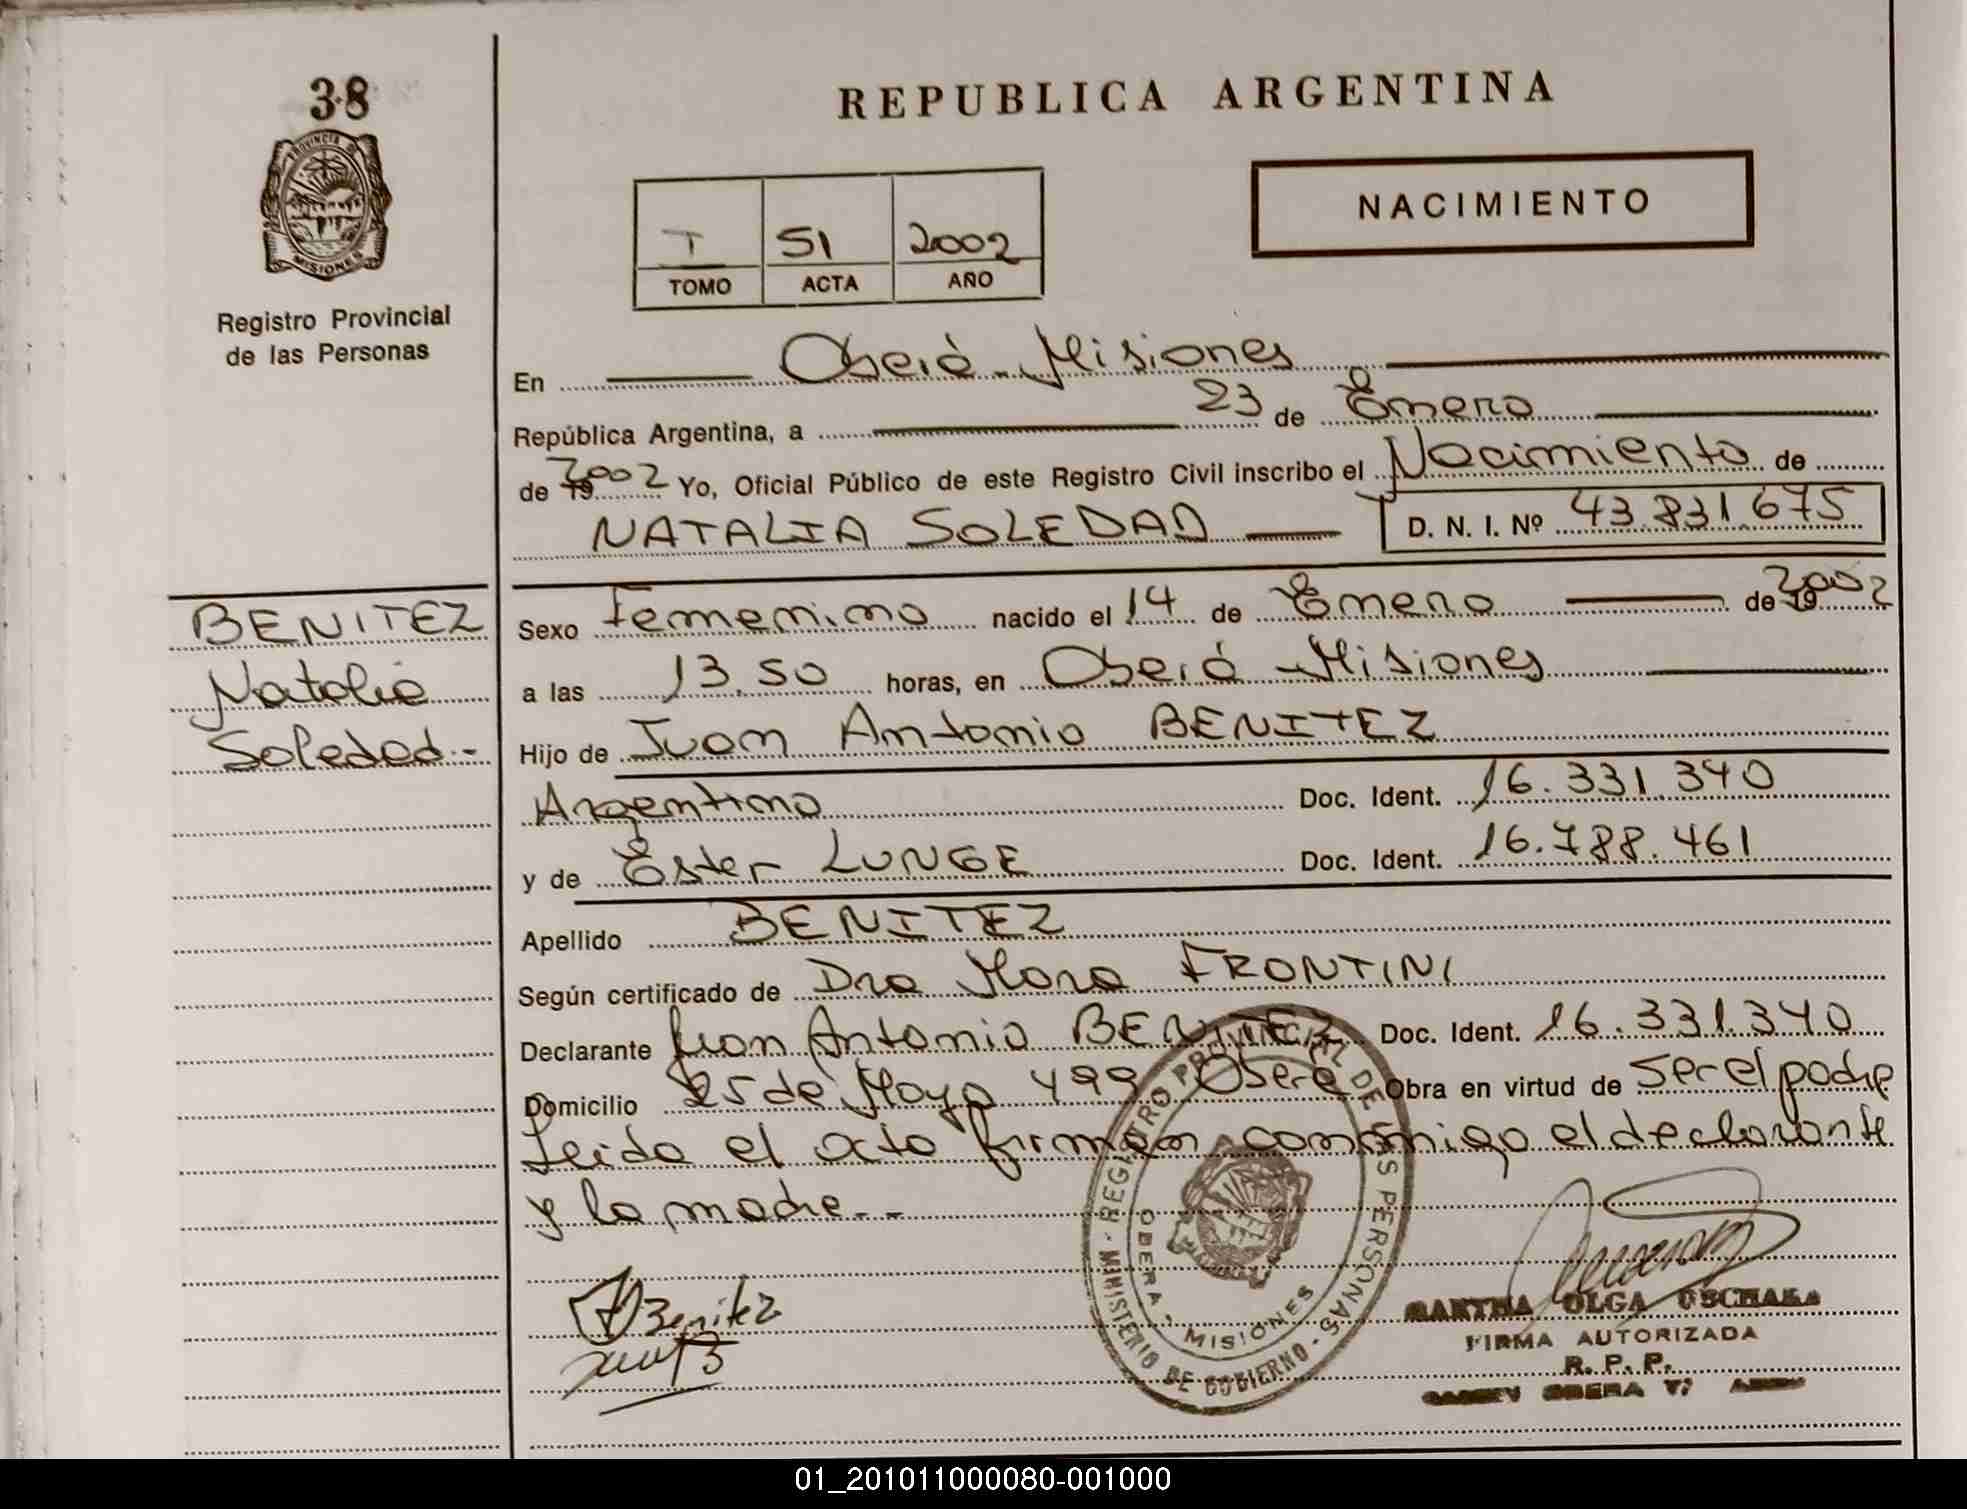 38
PROVINCIA DE
MISIONES
Registro Provincial
de las Personas
REPUBLICA ARGENTINA
NACIMIENTO
T 51 2002
TOMO ACTA AÑO
En Oberá - Misiones
República Argentina, a 23 de Enero
de 19 2002 Yo, Oficial Público de este Registro Civil inscribo el Nacimiento de
NATALIA SOLEDAD D. N. I. Nº 43.831.675
BENITEZ
Natalia
Soledad.-
Sexo Femenino nacido el 14 de Enero de 19 2002
a las 13,50 horas, en Oberá - Misiones
Hijo de Juan Antonio BENITEZ
Argentino Doc. Ident. 16.331.340
y de Ester LUNGE Doc. Ident. 16.788.461
Apellido BENITEZ
Según certificado de Dra Mora FRONTINI
Declarante Juan Antonio BENITEZ Doc. Ident. 16.331.340
Domicilio 25 de Mayo 499 Oberá Obra en virtud de ser el padre
Leida el acta firman conmigo el declarante
y la madre.--
Benitez
REGISTRO PROVINCIAL DE LAS PERSONAS - MINISTERIO DE GOBIERNO -
OBERA - MISIONES
MARTHA OLGA
FIRMA AUTORIZADA
R. P. P.
OBERA
01_201011000080-001000